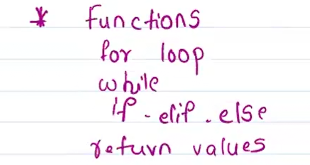 * functions
for loop
while
if - elif . else
return values